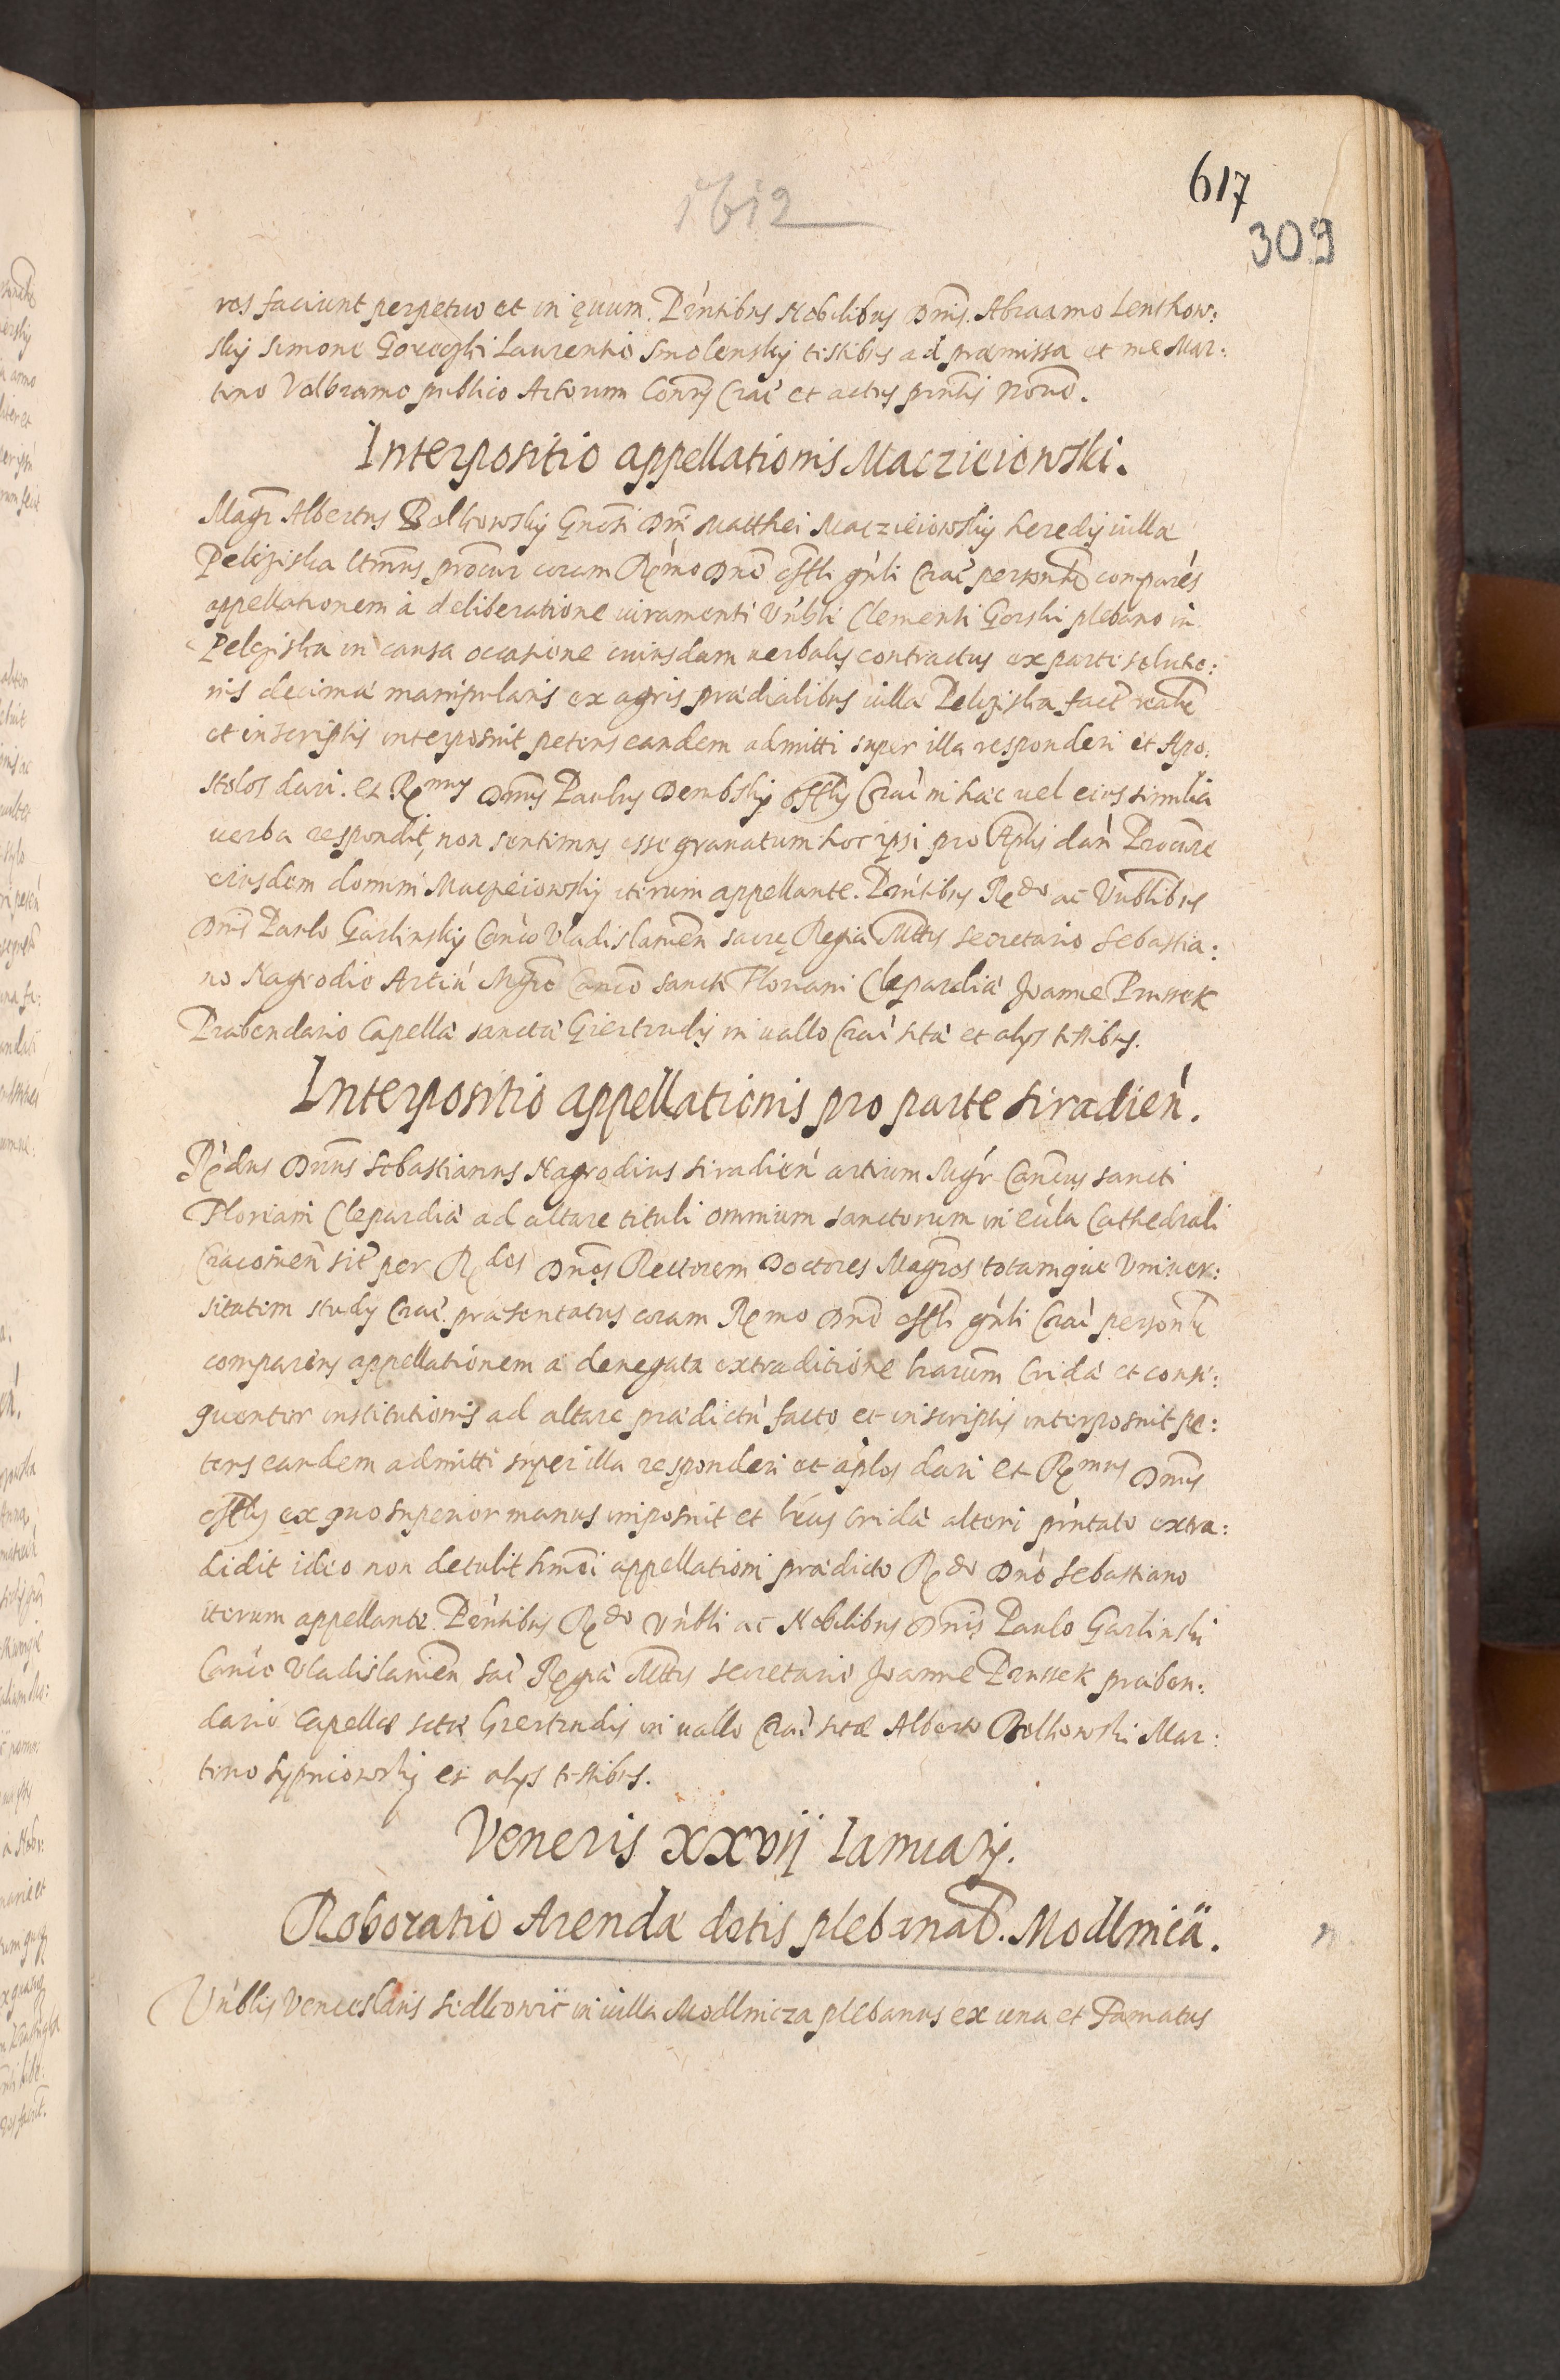 617
1612
309
res faciunt perpetuo et in ęvum. Pńtibus Nobilibus Dnis. Abraamo Lenthow:
skij Simone Gorecghi Laurentio Smolenskij testibus ad præmissa et me Mar:
tino Volbramo publico Actorum Consrÿ Crać et actus pńtis Notrō.
Interpositio appellationis Macziejowski.
Magr Albertus Bolkowskij Gnōsi Dni Matthei Macziejowskij heredis villæ
Pelcziska ltmus procur coram Rḿo Dnō offli gńli Crać personłr comparēs
appellationem à deliberatione iuramenti Vńbli Clementi Gorski plebano in
Pelcziska in causa occasione cuiusdam verbalis contractus ex parte solutio:
nis decimæ manipularis ex agris prædialibus villæ Pelcziska factē realr
et in scriptis interposuit petens eandem admitti super illa responderi et Apo:
stolos dari. Et Rmus Dnus Paulus Dembskij offlis Crać in hæc vel eius similia
verba respondit, non sentimus esse gravatum hoc ipsi pro Aplis dari Procure
eiusdem domini Maczieiowskij iterum appellante. Pńtibus Rdo ac Vnblibus
Dnis Paulo Garlinskij Canco Vladislavien sacrę Regiæ Mttis secretario Sebastia:
no Nagrodio Artiū Mgro Canco sancti Floriani Clepardiæ Joanne Prussek
Præbendario Capellæ sanctæ Giertrudis in vallo Crać sitæ et alijs testibus.
Interpositio appellationis pro parte Siradień.
Rdus Dnus Sebastianus Nagrodius Siradień artium Mgr Cancus sancti
Floriani Clepardiæ ad altare tituli omnium sanctorum in ecla Cathedrali
Cracovień sit per Rdos Dnos Rectorem Doctores Magros totamque Univer:
sitatem studij Crać præsentatus coram Rmo Dnō offli gńli Crać personłr
comparens appellationem a denegata extraditione lrarum Cridæ et conse:
quenter institutionis ad altare prædictū facto et in scriptis interposuit pe:
tens eandem admitti super illa responderi et aplos dari et Rmus Dnus
offlis ex quo superior manus imposuit et lras cridæ alteri pńtato extra:
didit ideo non detulit hmōi appellationi prædicto Rdo Dnō Sebastiano
iterum appellante. Pńtibus Rdo Vńbli ac Nobilibus Dnis Paulo Garlinski
Canco Vladislavien sać Regiæ Mttis secretario Joanne Prussek præben:
dario Capellæ sctæ Giertrudis in vallo Crać sitæ Alberto Bolkowski Mar:
tino Sypniowskij et alijs testibus.
Veneris XXVIJ Ianuarij.
Roboratio Arendæ dotis plebanal. Modlnicä.
Vńblis Venceslaus Siedlcowic in villa Modlnicza plebanus ex una et Famatus